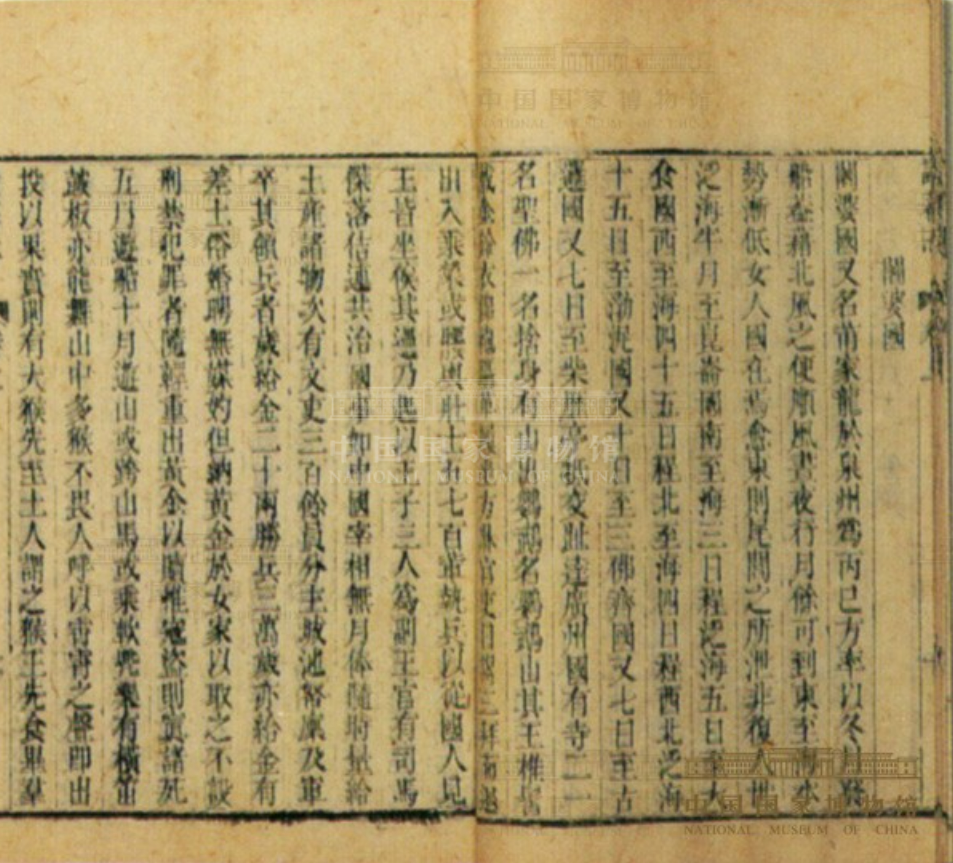 闍婆國
闍婆國又名莆家龍於泉州為丙巳方率以冬月發
船蓋藉北風之便順風晝夜行月餘可到東至海水
勢漸低女人國在焉愈東則尾閭之所泄非復人世
泛海半月至崑崙國南至海三日程泛海五日至大
食國西至海四十五日程北至海四日程西北泛海
十五日至渤泥國又十日至三佛齊國又七日至古
邏國又七日至柴歷亭抵交趾達廣州國有寺二一
名聖佛一名捨身有山出鸚鵡名鸚鵡山其王椎髻
戴金鈴衣錦袍躡革履坐方牀官吏日謁三拜而退
出入乘象或腰輿壯士五七百輩執兵以從國人見
王皆坐俟其過乃起以王子三人為副王官有司馬
傑落佶連共治國事如中國宰相無月俸隨時量給
土產諸物次有文吏三百餘員分主城池帑廩及軍
卒其領兵者歲給金二十兩勝兵三萬歲亦給金有
差土俗婚聘無媒妁但納黃金於女家以取之不設
刑禁犯罪者隨輕重出黃金以贖惟寇盜則寘諸死
五月遊船十月遊山或跨山馬或乘軟兜樂有橫笛
鼓板亦能舞山中多猴不畏人呼以霄霄之聲即出
投以果實則有大猴先至土人謂之猴王先食畢羣
中国国家博物馆
NATIONAL MUSEUM OF CHINA
中国国家博物馆
NATIONAL MUSEUM OF CHINA
中国国家博物馆
NATIONAL MUSEUM OF CHINA